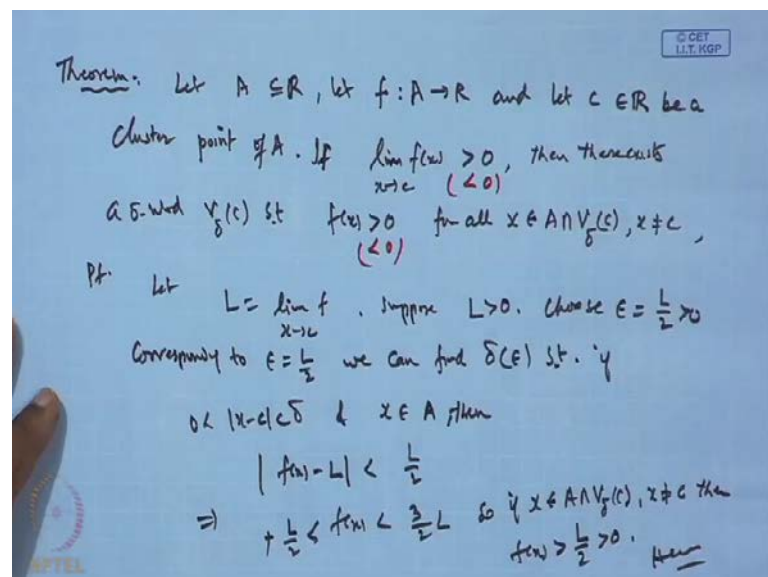 © CET
I.I.T. KGP
Theorem. Let A ⊆ R, let f : A → R and let c ∈ R be a
cluster point of A. If lim f(x) > 0, then there exists
x→c (< 0)
a δ-nbd V_δ(c) s.t f(x) > 0 for all x ∈ A ∩ V_δ(c), x ≠ c,
(< 0)
Pf. Let L = lim f . Suppose L > 0. Choose ε = L/2 > 0
x→c
Correspondy to ε = L/2 we can find δ(ε) s.t. if
0 < |x-c| < δ & x ∈ A, then
| f(x) - L | < L/2
⇒ + L/2 < f(x) < 3/2 L so if x ∈ A ∩ V_δ(c), x ≠ c then
f(x) > L/2 > 0.
NPTEL